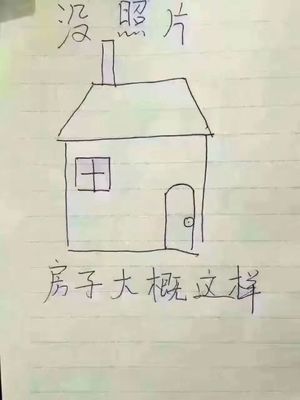 没照片
房子大概这样